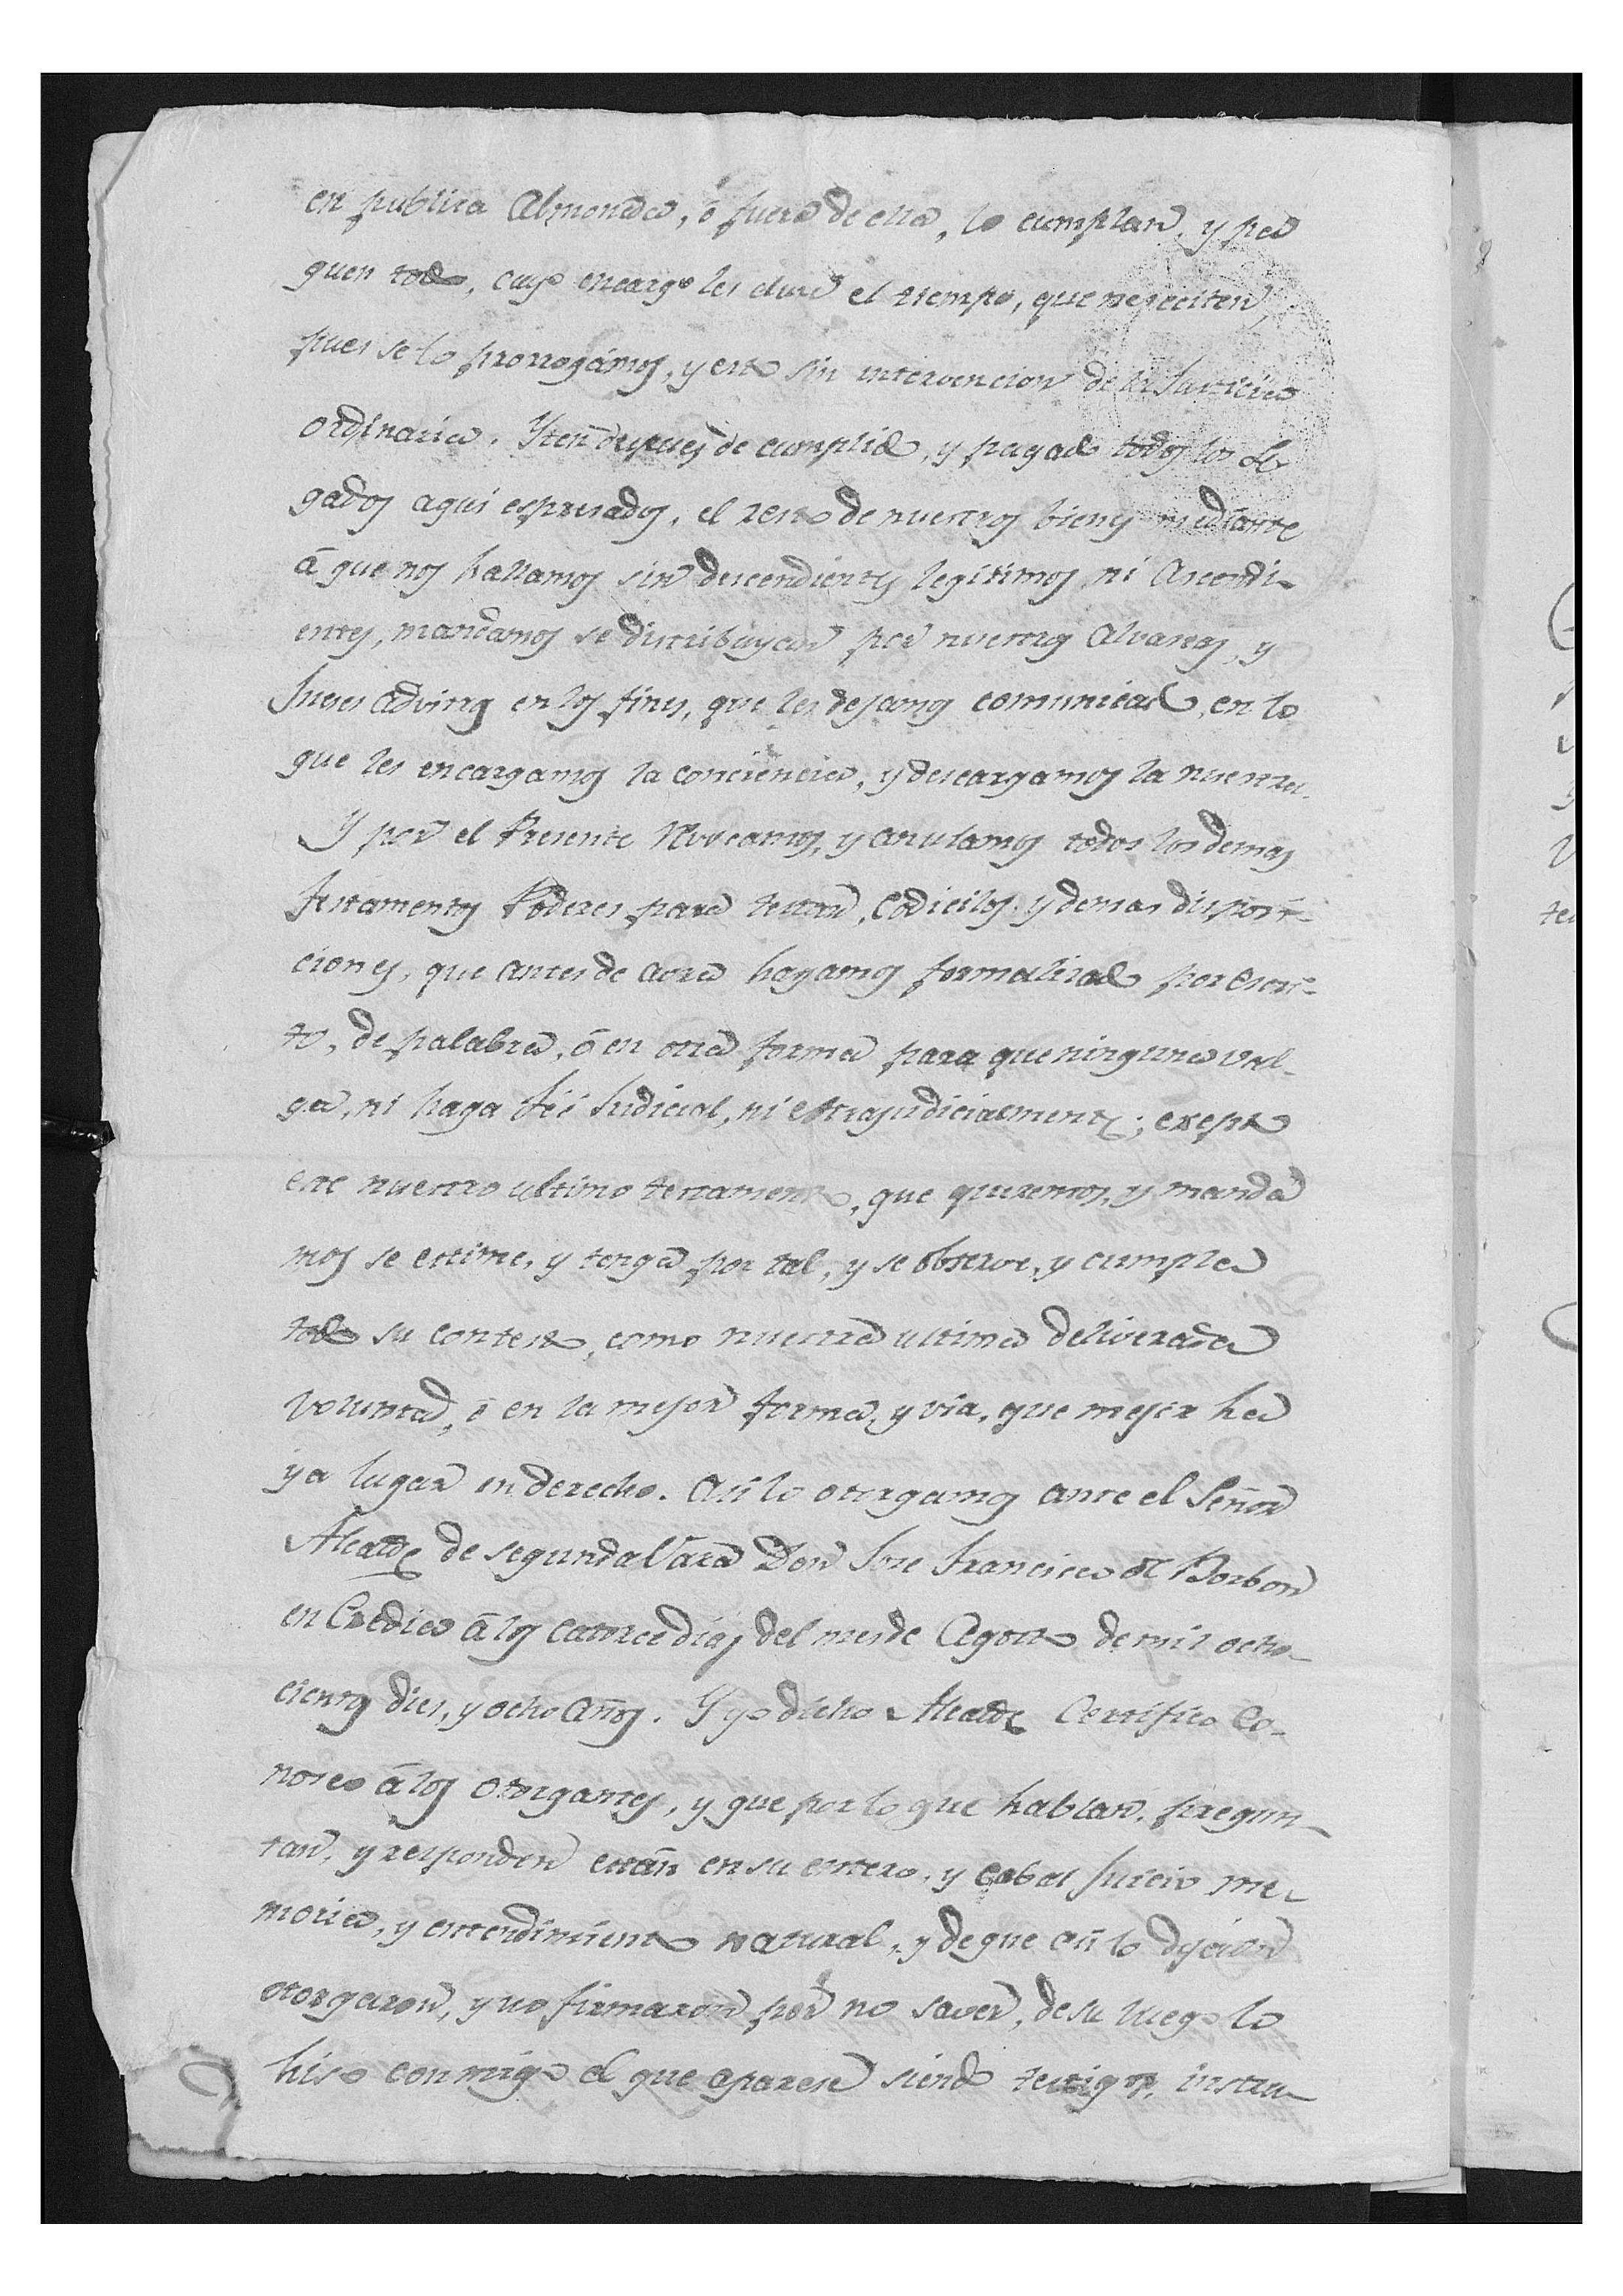 en publica Almoneda, ó fuera de ella, lo cumplan, y pa
guen todo, cuyo encargo les dure el tiempo, que nececiten,
pues se lo prorrogámos, y esto sin intervencion de la Justicia
ordinaria. Yten despues de cumplido, y pagado todos los Le
gados aqui espresados, el resto de nuestros bienes mediante
á que nos hallamos sin descendientes legitimos, ni Ascendi-
entes, mandamos se distribuyan por nuestros Alvaceas, y
Jueses Advinos en los fines, que les dejamos comunicado, en lo
que les encargamos la conciencia, y descargamos la nuestra.
Y por el Presente Revocamos, y anulamos todos los demas
testamentos Poderes para testar, Codicilos, y demas disposi-
ciones, que antes de aora hayamos formalizado por Escri-
to, de palabra, ó en otra forma para que ninguna val-
ga, ni haga féé Judicial, ni extrajudicialmente; exepto
este nuestro ultimo testamento, que queremos, y manda
mos se estime, y tenga por tal, y se observe, y cumpla
todo su contesto, como nuestra ultima deliverada
voluntad, ó en la mejor forma, y via, que mejor ha
ya lugar en derecho. Asi lo otorgamos ante el Señor
Alcalde de segunda Vara Don Jose Francisco de Borbon
en á los catorce dias del mes de Agosto de mil ocho-
cientos dies, y ocho Años. Y yo dicho Alcalde Certifico Co-
nosco á los otorgantes, y que por lo que hablan, pregun-
tan, y responden están en su entero, y cabal Juicio me-
moria, y entendimiento natural, y de que asi lo dijeron
otorgaron, y no firmaron por no saver, de su ruego lo
hiso conmigo el que aparese siendo testigos, instru-